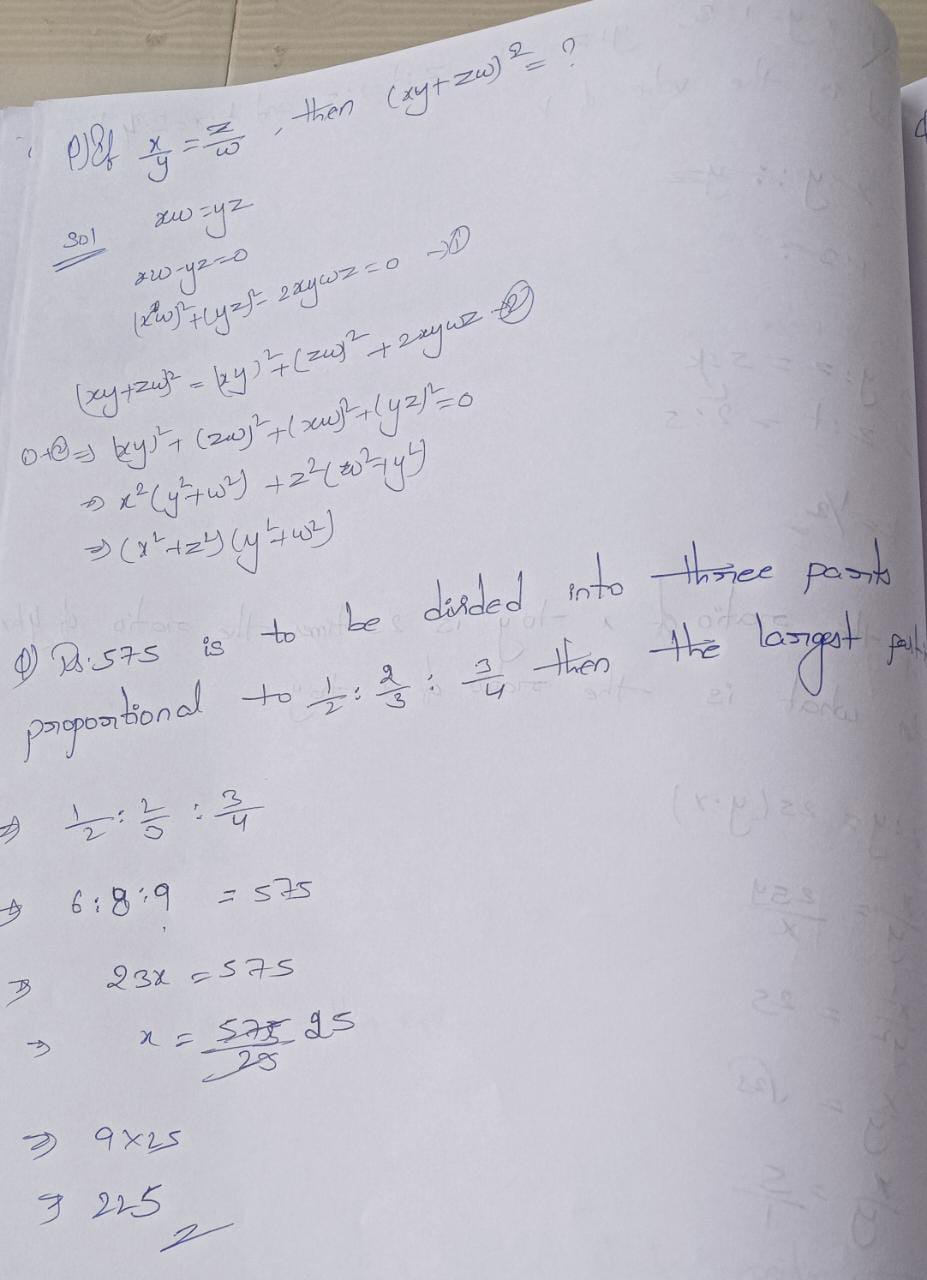 P) If x/y = z/w, then (xy+zw)² = ?
Sol xw = yz
xw-yz=0
(xw)²+(yz)²- 2xywz=0 →①
(xy+zw)² = (xy)²+(zw)²+2xywz →②
①+②⇒ (xy)²+(zw)²+(xw)²+(yz)²=0
⇒ x²(y²+w²) +z²(w²+y²)
⇒ (x²+z²)(y²+w²)
Q) Rs.575 is to be divided into three parts
proportional to 1/2 : 2/3 : 3/4 then the largest part
⇒ 1/2 : 2/3 : 3/4
⇒ 6:8:9 = 575
⇒ 23x = 575
⇒ x = 575/23 25
⇒ 9×25
⇒ 225